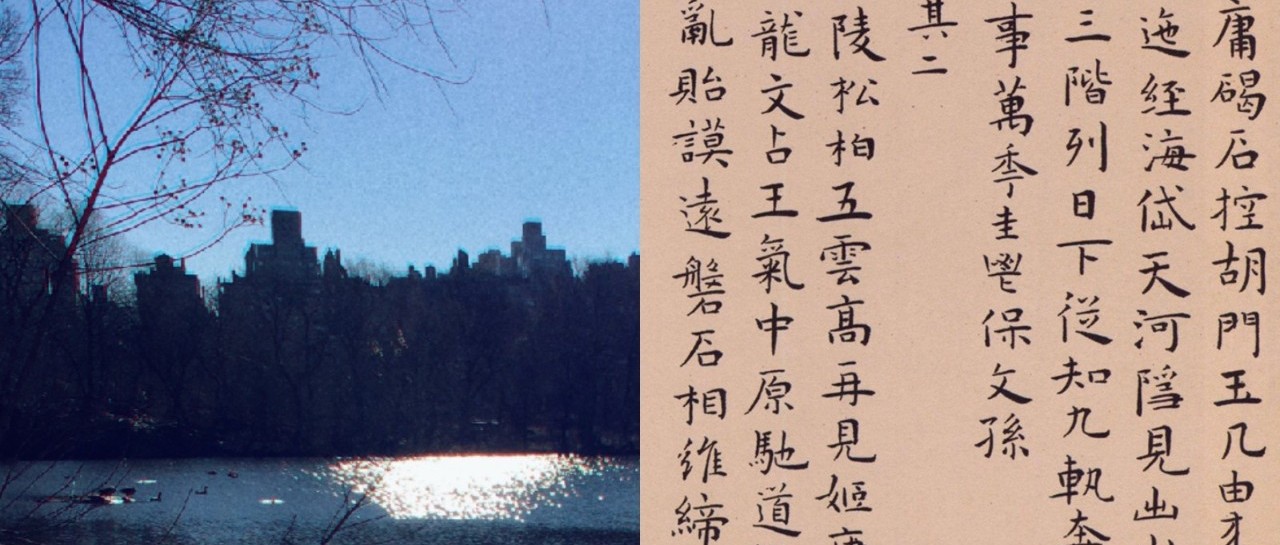 庸碣石控胡門玉几由
迤經海岱天河隱見出
三階列日下從知九軌奔
事萬季圭鬯保文孫
其二
陵松柏五雲高再見姬
龍文占王氣中原馳道
亂貽謨遠磐石相維締